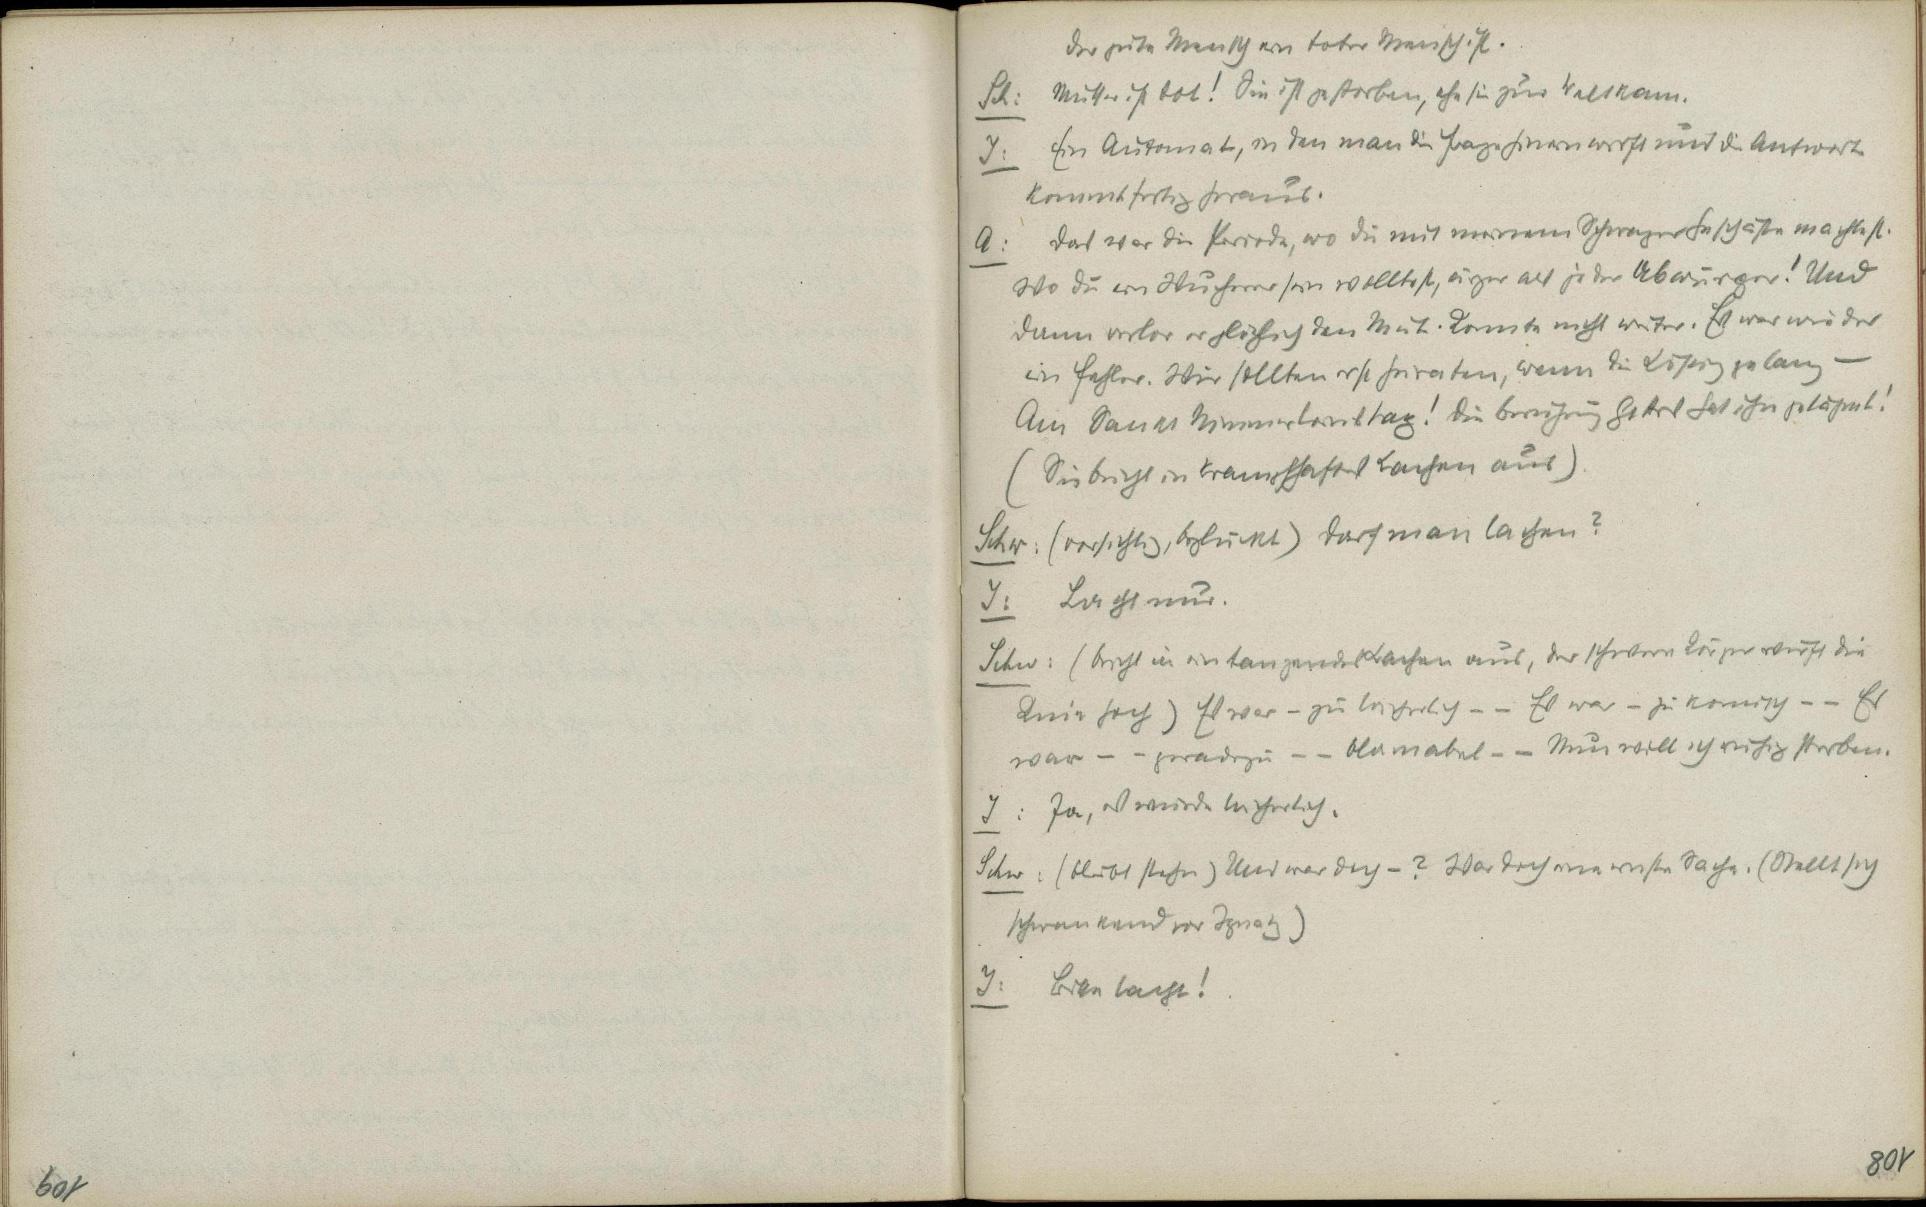 der gute Mensch ein toter Mensch ist.
Sch: Mutter ist tot! Sie ist gestorben, ehe sie zur Welt kam.
I: Ein Automat, in den man die Frage hineinwirft und die Antwort
kommt fertig heraus.
A: Das war die Periode, wo du mit meinem Schwager Geschäfte machtest.
Wo du ein Wucherer sein wolltest, ärger als jeder Abwürger! Und
dann verlor er plötzlich den Mut. Konnte nicht weiter. Es war wieder
ein Fehler. Wir sollten erst heiraten, wenn die Lösung gelang —
Am Sankt Nimmerleinstag! Die Berührung Gottes hat ihn gelähmt!
(Sie bricht in krampfhaftes Lachen aus).
Schw: (vorsichtig, beglückt) Darf man lachen?
I: Lacht nur.
Schw: (bricht in ein tanzendes Lachen aus, der schwere Körper wirft die
Knie hoch) Es war – zu lächerlich – – Es war – zu komisch – – Es
war – – geradezu – – blamabel – – Nun will ich ruhig sterben.
I: Ja, es wurde lächerlich.
Schw: (bleibt stehn) Und war doch –? War doch eine ernste Sache. (Stellt sich
schwankend vor Ignatz)
I: lacht!
109
108